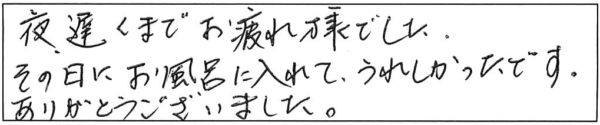 夜遅くまでお疲れ様でした.
その日にお風呂に入れて、うれしかったです.
ありがとうございました。